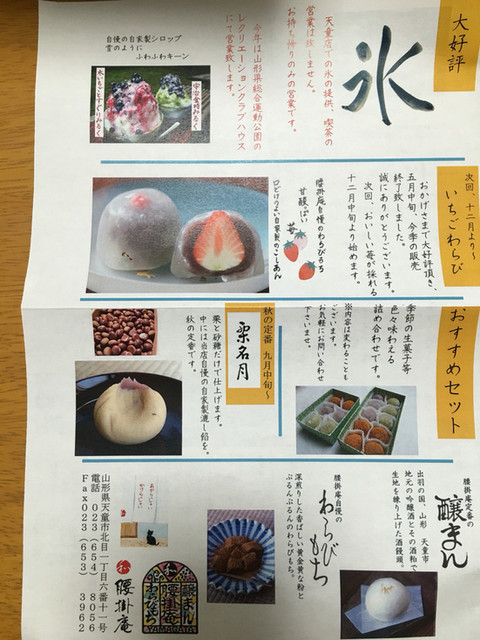 大好評
氷
天童店での氷の提供、喫茶の
営業は致しません。
お持ち帰りのみの営業です。
今年は山形県総合運動公園の
レクリエーションクラブハウス
にて営業致します。
自慢の自家製シロップ
雪のように
ふわふわキーン
宇治金時みるく
氷いちごとすぐりみるく
次回、十二月より~
いちごわらび
おかげさまで大好評頂き、
五月中旬、今季の販売
終了致しました。
誠にありがとうございます。
次回、おいしい苺が採れる
十二月中旬より始めます。
腰掛庵自慢のわらびもち
甘酸ぱい 苺
口どけのよい自家製のこしあん
おすすめセット
季節の生菓子等
色々味わえる
詰め合わせです。
※内容は変わることも
ございます。
お気軽にお問い合わせ
下さいませ。
秋の定番 九月中旬~
栗名月
栗と砂糖だけで仕上げます。
中には当店自慢の自家製漉し餡を。
秋の定番です。
腰掛庵定番の
醸まん
出羽の国、山形 天童市
地元の吟醸酒とその酒粕で
生地を練り上げた酒饅頭。
腰掛庵自慢の
わらびもち
深煎りした香ばしい黄金黄な粉と
ぷるんぷるんのわらびもち。
醸まん
腰掛庵
わらびもち
YAMAGATA
腰掛庵
山形県天童市北目一丁目六番十一号
電話 023(654)8056
Fax023(653)3962